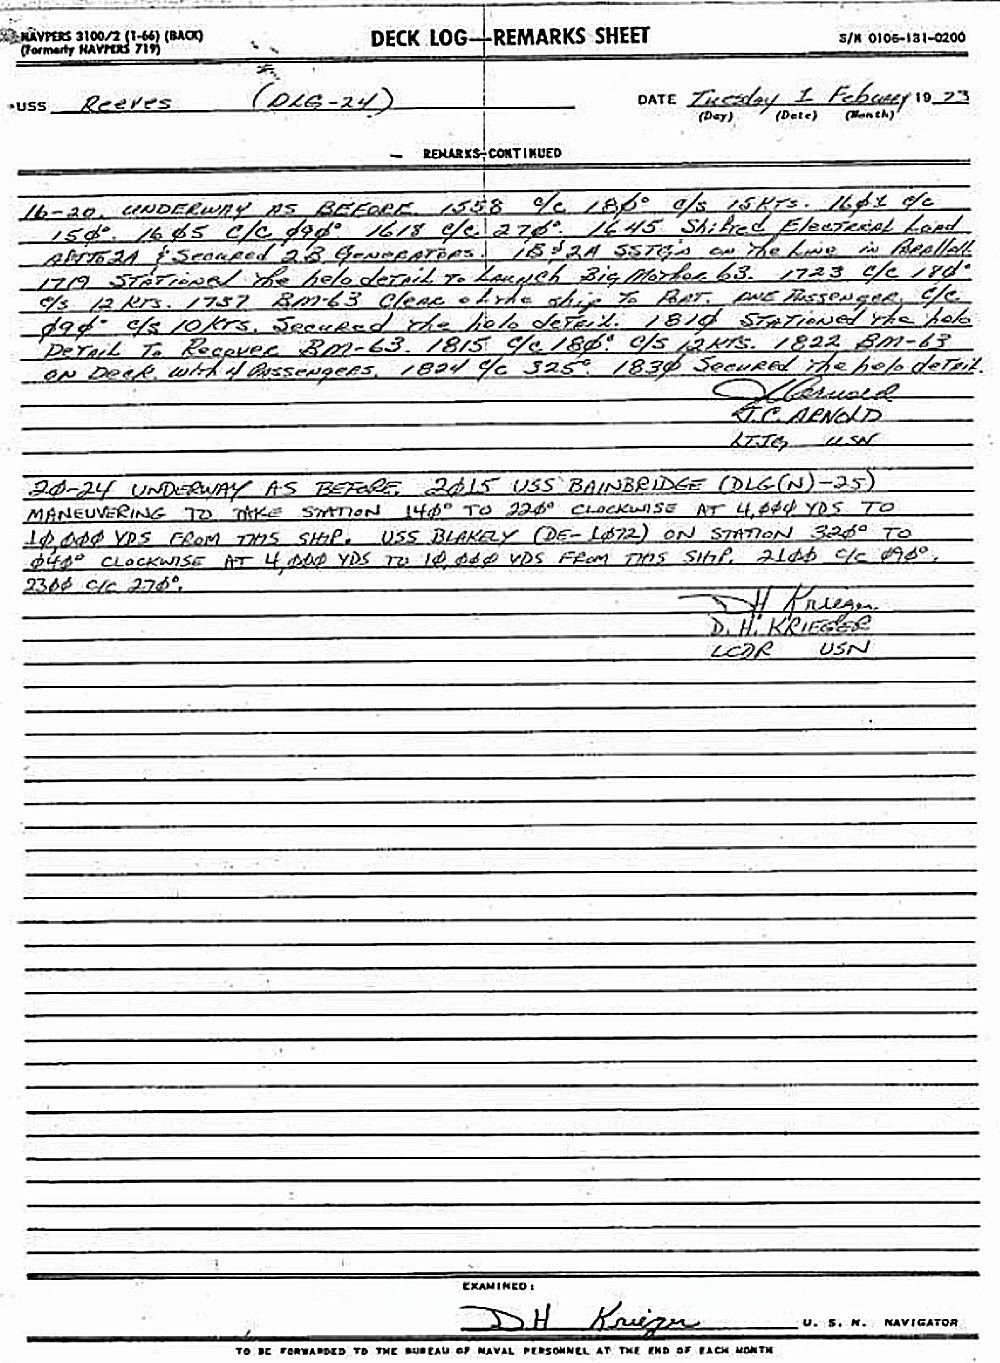 NAVPERS 3100/2 (1-66) (BACK)
(Formerly NAVPERS 719)
DECK LOG—REMARKS SHEET
S/N 0106-131-0200
USS Reeves (DLG-24)
DATE Tuesday 1 Febuary 19 73
(Day) (Date) (Month)
REMARKS-CONTINUED
16-20. UNDERWAY AS BEFORE 1558 c/c 18ø° c/s 15 KTS. 16ø1 c/c
15ø°. 16ø5 c/c ø9ø° 1618 c/c 27ø°. 1645 Shifted Electrical Load
2A & Secured 2B Generators. 1B & 2A SSTG's on The Line in Parallel
1719 STATIONED The helo detail To Launch Big Mother 63. 1723 c/c 18ø°
c/s 12 KTS. 1737 BM-63 Clear of the ship To Port. ONE Passenger, c/c
ø9ø° c/s 10 KTS. Secured The helo detail. 181ø STATIONED The helo
Detail To Recover BM-63. 1815 c/c 18ø°. c/s 12 KTS. 1822 BM-63
ON Deck. with 4 Passengers. 1824 c/c 325°. 183ø Secured The helo detail.
J C Arnold
J.C. ARNOLD
LTJG USN
2ø-24 UNDERWAY AS BEFORE. 2ø15 USS BAINBRIDGE (DLG(N)-25)
MANEUVERING TO TAKE STATION 14ø° TO 22ø° CLOCKWISE AT 4,øøø YDS TO
1ø,øøø YDS FROM THIS SHIP. USS BLAKELY (DE-1ø72) ON STATION 32ø° TO
ø4ø° CLOCKWISE AT 4,øøø YDS TO 1ø,øøø YDS FROM THIS SHIP. 21øø c/c ø9ø°.
23øø c/c 27ø°.
D H Krieger
D. H. KRIEGER
LCDR USN
EXAMINED:
D H Krieger U. S. N. NAVIGATOR
TO BE FORWARDED TO THE BUREAU OF NAVAL PERSONNEL AT THE END OF EACH MONTH